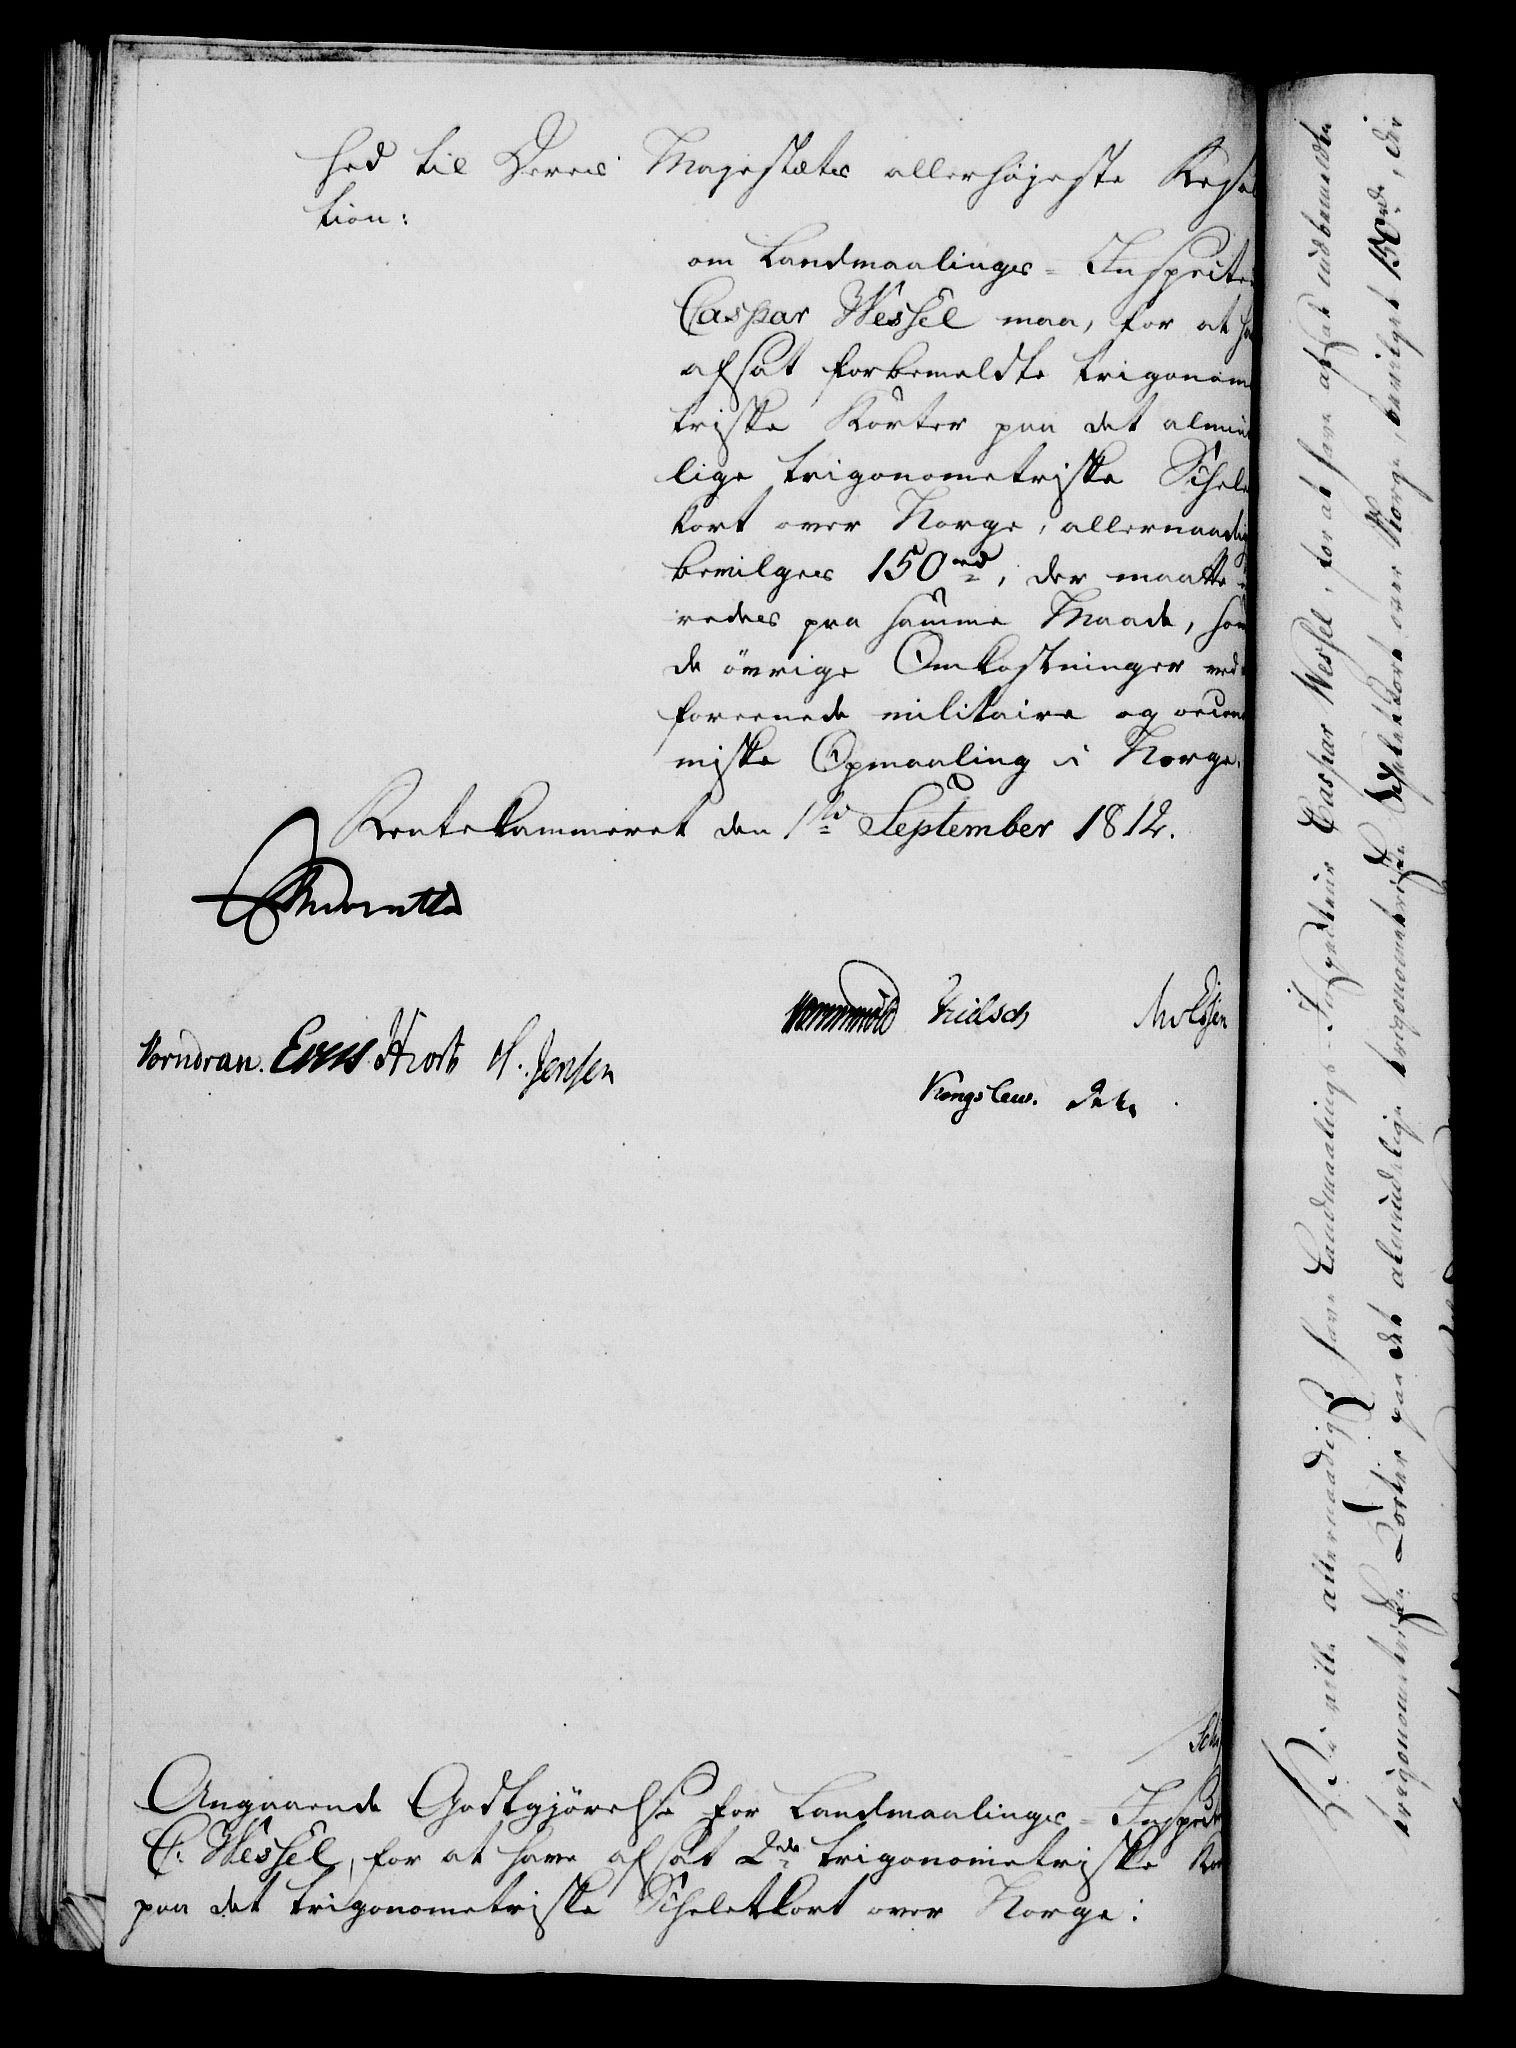 hed til Deres Majestæts allerhøjeste Resol
tion:
om Landmaalings-Inspecteur
Caspar Wessel maa, for at ha
afsat forbemeldte trigonome
triske Karter paa det almin
lige trigonometriske Schele
kort over Norge, allernaadig
bevilges 150 rd, der maatte
redes paa samme Maade, som
de övrige Omkostninger ved
foreenede militaire og oecono
miske Opmaaling i Norge.
Rentekammeret den 1ste September 1812.
Vorndran. H. Jensen
Kongslew.
Angaaende Godtgjörelse for Landmaalings-Inspecte
C. Wessel, for at have afsat 2de trigonometriske Kor
paa det trigonometriske Scheletkort over Norge.
Vi ville allernaadigst have Landmaalings-Inspecteur Caspar Wessel, for at have afsat indbemeldte
trigonometriske Korter paa det almindelige trigonometriske Scheletkort over Norge, bevilget 150 rd, der